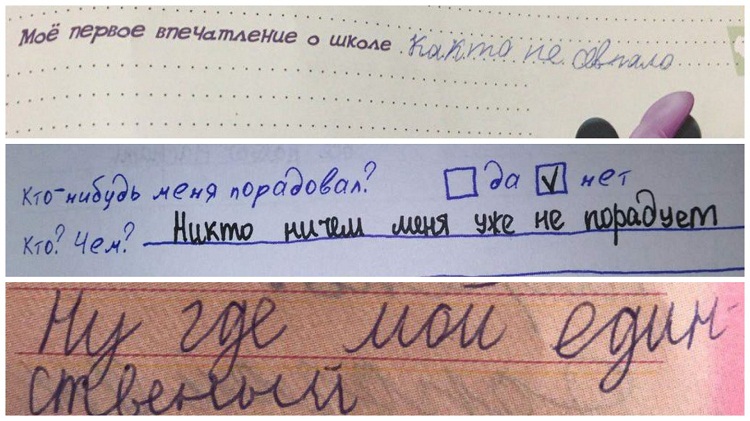 Моё первое впечатление о школе Както не авпало
Кто-нибудь меня порадовал? да нет
Кто? Чем? Никто ничем меня уже не порадует
Ну где мой един-
ственый